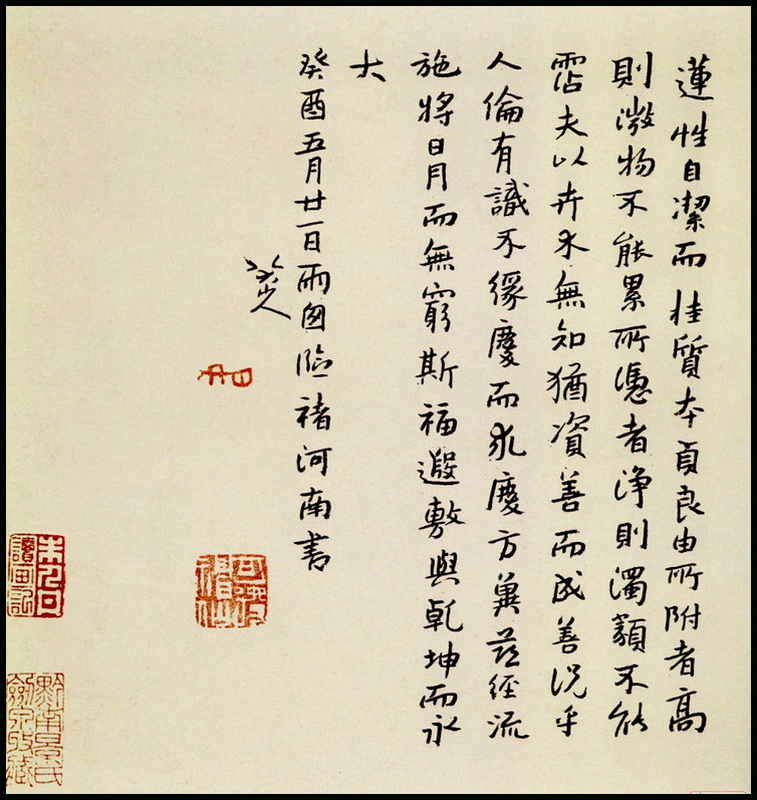 蓮性自潔而桂質本貞良由所附者高
則溦物不能累所憑者浄則濁類不能
霑夫以卉木無知猶資善而成善況乎
人倫有識不緣慶而求慶方冀茲經流
施將日月而無窮斯福遐敷與乾坤而永
大
癸酉五月廿一日雨囱臨褚河南書
八大山人
可得神仙
黔南景氏
劍泉攷藏